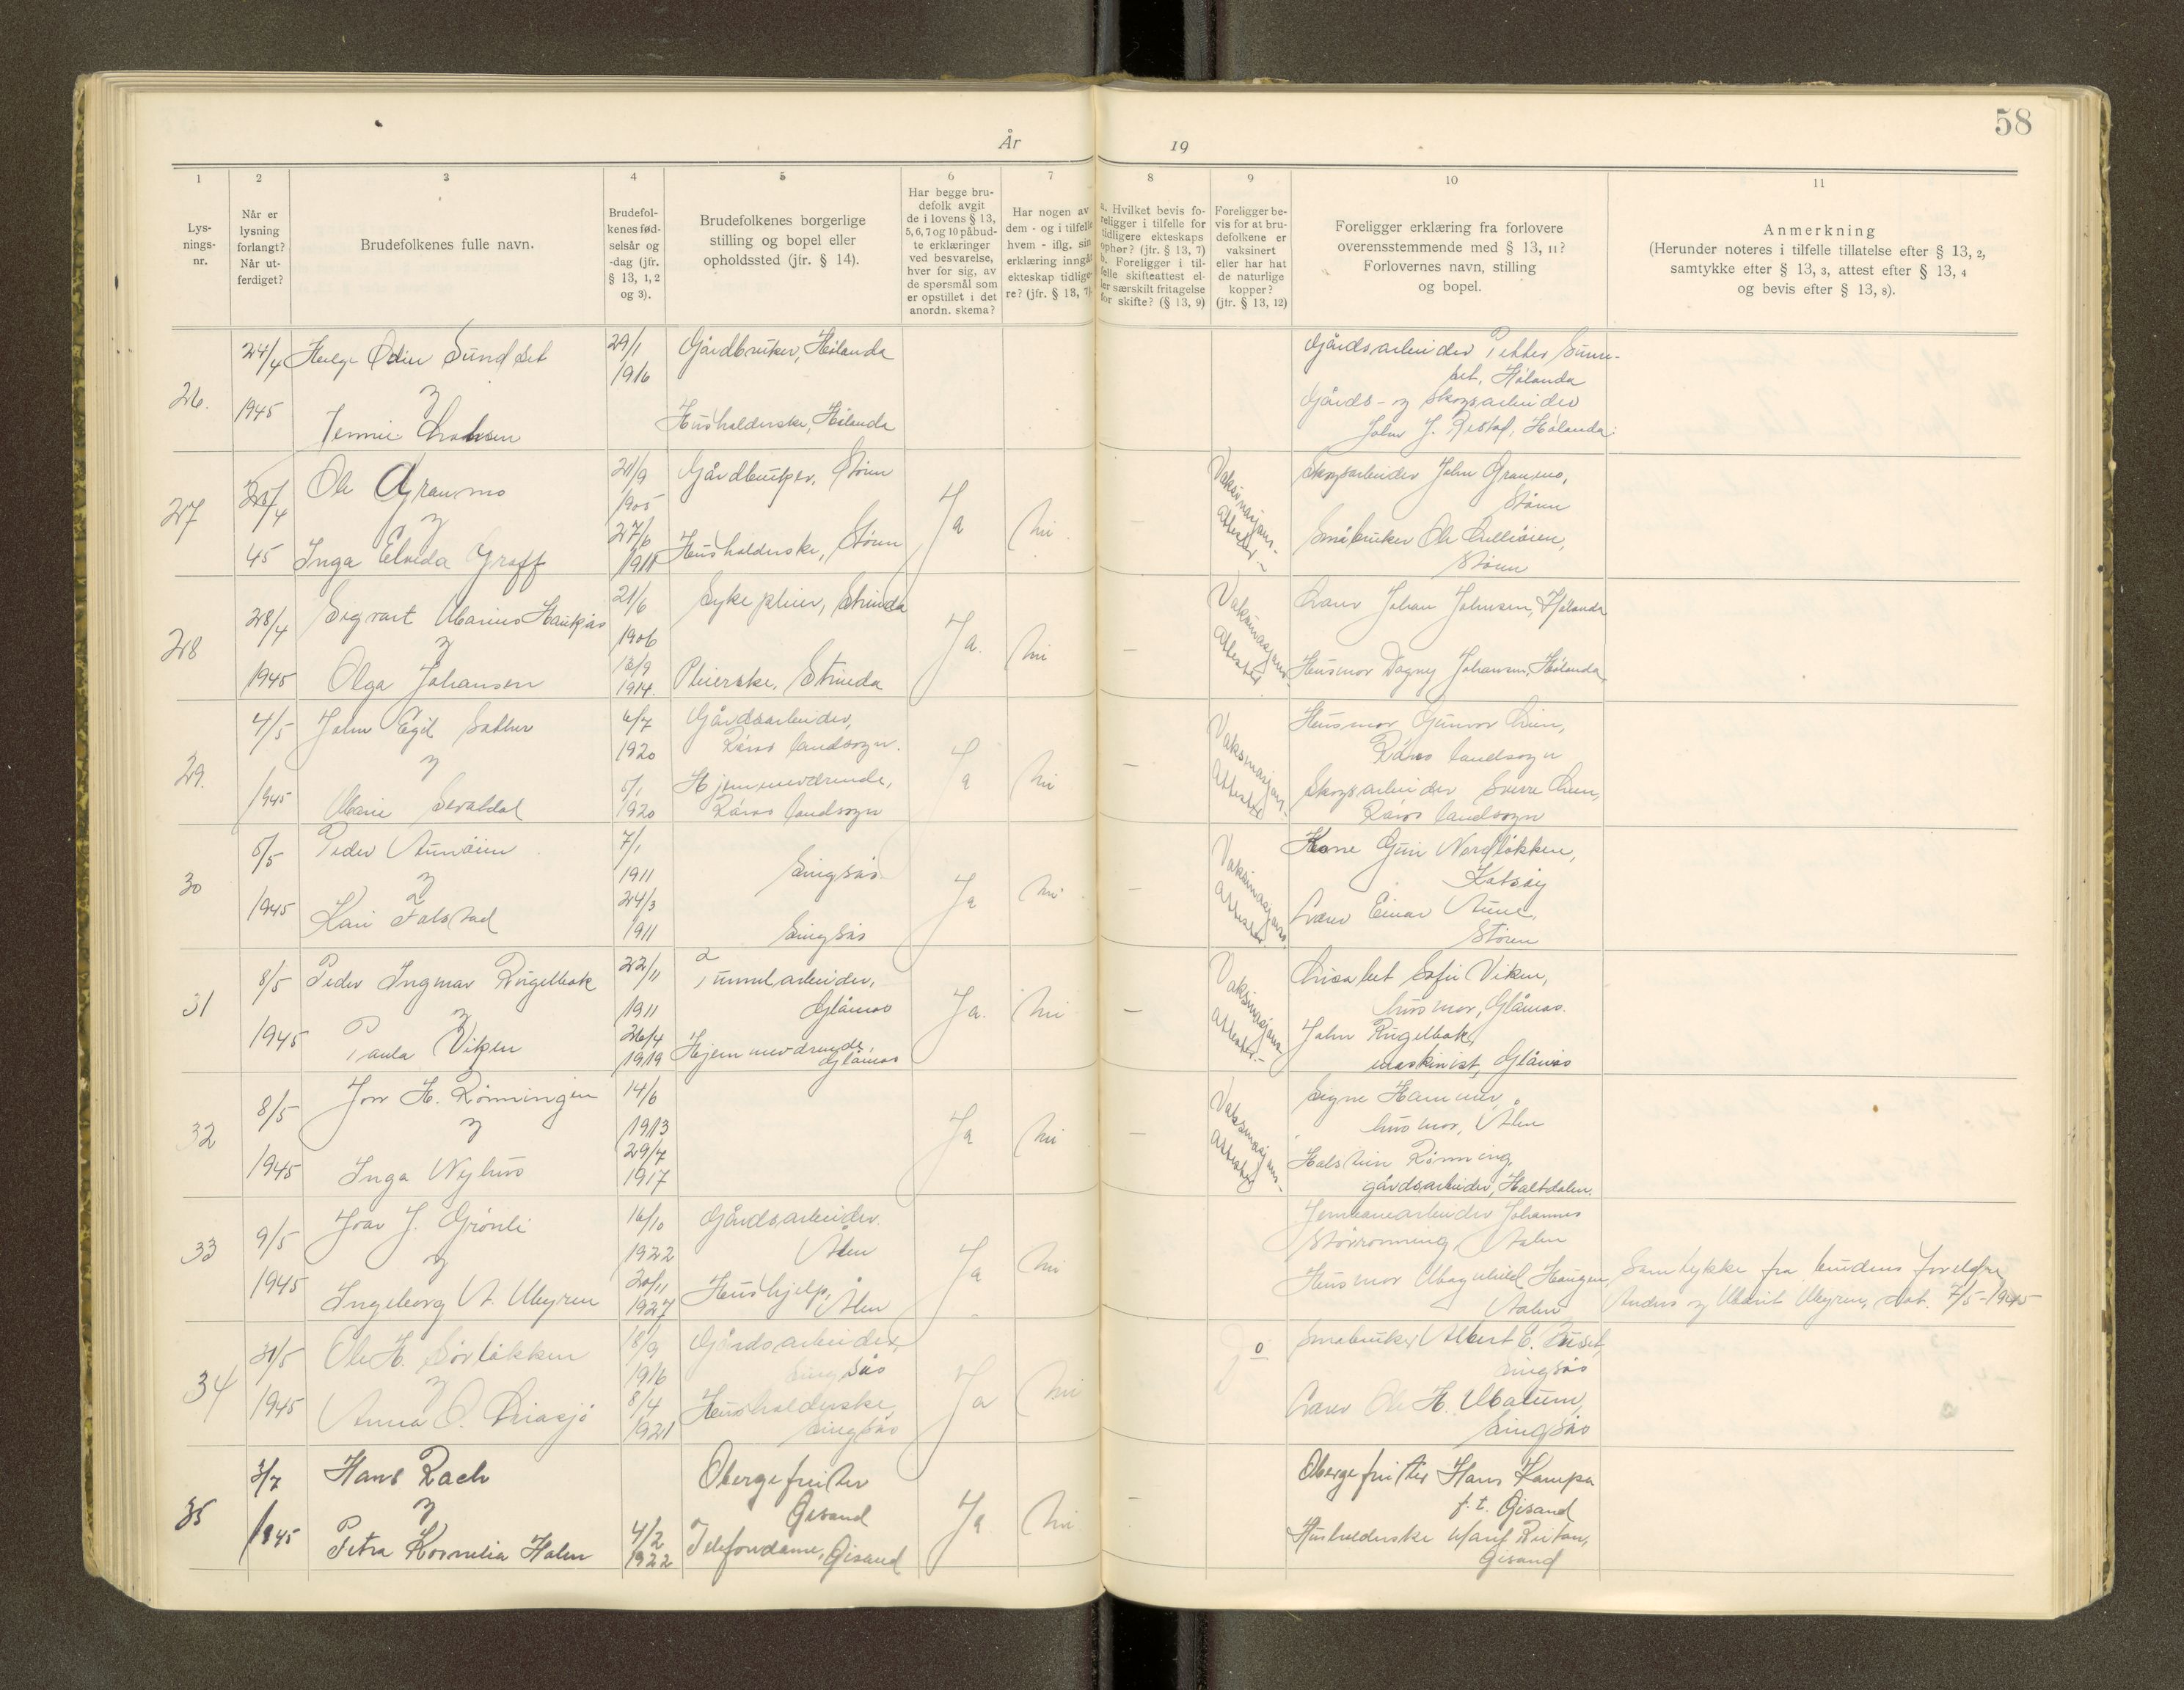 58
År
19
1
2
3
4
5
6
7
8
9
10
11
Lys-
nings-
nr.
Når er
lysning
forlangt?
Når ut-
ferdiget?
Brudefolkenes fulle navn.
Brudefol-
kenes fød-
selsår og
-dag (jfr.
§ 13, 1, 2
og 3).
Brudefolkenes borgerlige
stilling og bopel eller
opholdssted (jfr. § 14).
Har begge bru-
defolk avgit
de i lovens § 13,
5, 6, 7 og 10 påbud-
te erklæringer
ved besvarelse,
hver for sig, av
de spørsmål som
er opstillet i det
anordn. skema?
Har nogen av
dem - og i tilfelle
hvem - iflg. sin
erklæring inngåt
ekteskap tidlige-
re? (jfr. § 13, 7).
a. Hvilket bevis fo-
religger i tilfelle for
tidligere ekteskaps
ophør? (jfr. § 13, 7)
b. Foreligger i til-
felle skifteattest el-
ler særskilt fritagelse
for skifte? (§ 13, 9)
Foreligger be-
vis for at bru-
defolkene er
vaksinert
eller har hat
de naturlige
kopper?
(jfr. § 13, 12)
Foreligger erklæring fra forlovere
overensstemmende med § 13, 11?
Forlovernes navn, stilling
og bopel.
Anmerkning
(Herunder noteres i tilfelle tillatelse efter § 13, 2,
samtykke efter § 13, 3, attest efter § 13, 4
og bevis efter § 13, 8).
26.
24/4
1945
Helge Odin Sundset
og
Jennie
29/1
1916
Gårdbruker, Hølanda
Husholderske, Hølanda
Gårdsarbeider Petter Sund-
set, Hølanda
Gårds- og skogsarbeider
John J. Hølanda
27
25/4
45
Ole Granmo
og
Inga Elvida Graff
21/9
1905
27/6
1911
Gårdbruker, Støren
Husholderske, Støren
Ja
Nei
Vaksinasjons-
attester
Skogsarbeider John Granmo,
Støren
Småbruker Ole
Støren
28
28/4
1945
Sigvart Marius Haukås
og
Olga Johansen
21/6
1906
12/9
1914
Sykepleier, Strinda
Pleierske, Strinda
Ja.
Nei
Vaksinasjons-
attester
Lærer Johan Johnsen, Hølanda
Husmor Dagny Johansen, Hølanda
29.
4/5
1945
John Egil Sætter
og
Marie Sevatdal
6/7
1920
5/1
1920
Gårdsarbeider,
Røros landsogn.
Hjemmeværende,
Røros landsogn
Ja
Nei
Vaksinasjons-
attester
Husmor Gunvor Lien,
Røros landsogn
Skogsarbeider Sverre Lien,
Røros landsogn
30
5/5
1945
Peder Aunøien
og
Kari Folstad
7/1
1911
24/3
1911
Singsås
Singsås
Ja
Nei
Vaksinasjons-
attester
Kone Guri Nordløkken,
Kotsøy
Lærer Einar Aune,
Støren
31
8/5
1945
Peder Ingmar Rugelbak
og
Paula Viken
22/11
1911
26/4
1919
Tunnelarbeider,
Glåmos
Hjemmeværende,
Glåmos
Ja.
Nei
Vaksinasjons-
attester
Lisabet Sofie Viken,
husmor, Glåmos.
John Rugelbak,
maskinist, Glåmos
32
8/5
1945
Jon H. Rønningen
og
Inga Nyhus
14/6
1913
29/4
1917
Ja
Nei
Vaksinasjons-
attester
Signe Hammer,
husmor, Ålen
Halstein Rønning,
gårdsarbeider, Haltdalen.
33
9/5
1945
Joar J. Grønli
og
Ingeborg A. Myren
16/10
1922
20/11
1927
Gårdsarbeider
Ålen
Hushjelp,
Ålen
Ja
Nei
Jernbanearbeider Johannes
Storrønning, Aalen
Husmor Magnhild Haugen,
Aalen
Samtykke fra brudens foreldre
Anders og Marit Myren, dat. 7/5-1945
34
31/5
1945
Ole H. Sørløkken
og
Anna O. Liasjø
18/9
1916
8/4
1921
Gårdsarbeider,
Singsås
Husholderske,
Singsås
Ja
Nei
Do
Småbruker Albert E. Buset,
Singsås
Lærer Ole H. Moltum,
Singsås
35
3/7
1945
Hans Rach
og
Petra Kornelia Holen
4/2
1922
Obergefreiter
Gisand
Telefondame, Gisand
Ja
Nei
Obergefreiter Hans Kampa
f.t. Gisand
Husholderske Marif Reitan,
Gisand